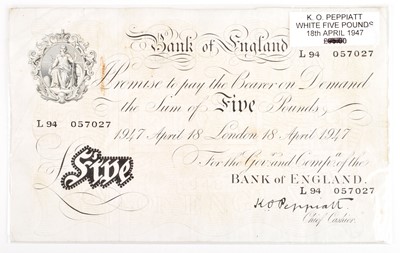 K. O. PEPPIATT
WHITE FIVE POUNDS
18th APRIL 1947
Bank of England
L 94 057027
I Promise to pay the Bearer on Demand
the Sum of Five Pounds
L 94 057027
1947 April 18 London 18 April 1947
For the Govr. and Compa. of the
BANK OF ENGLAND.
L 94 057027
£Five
K O Peppiatt
Chief Cashier.